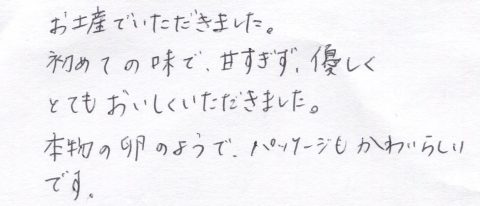 お土産でいただきました。
初めての味で、甘すぎず、優しく
とてもおいしくいただきました。
本物の卵のようで、パッケージもかわいらしい
です。